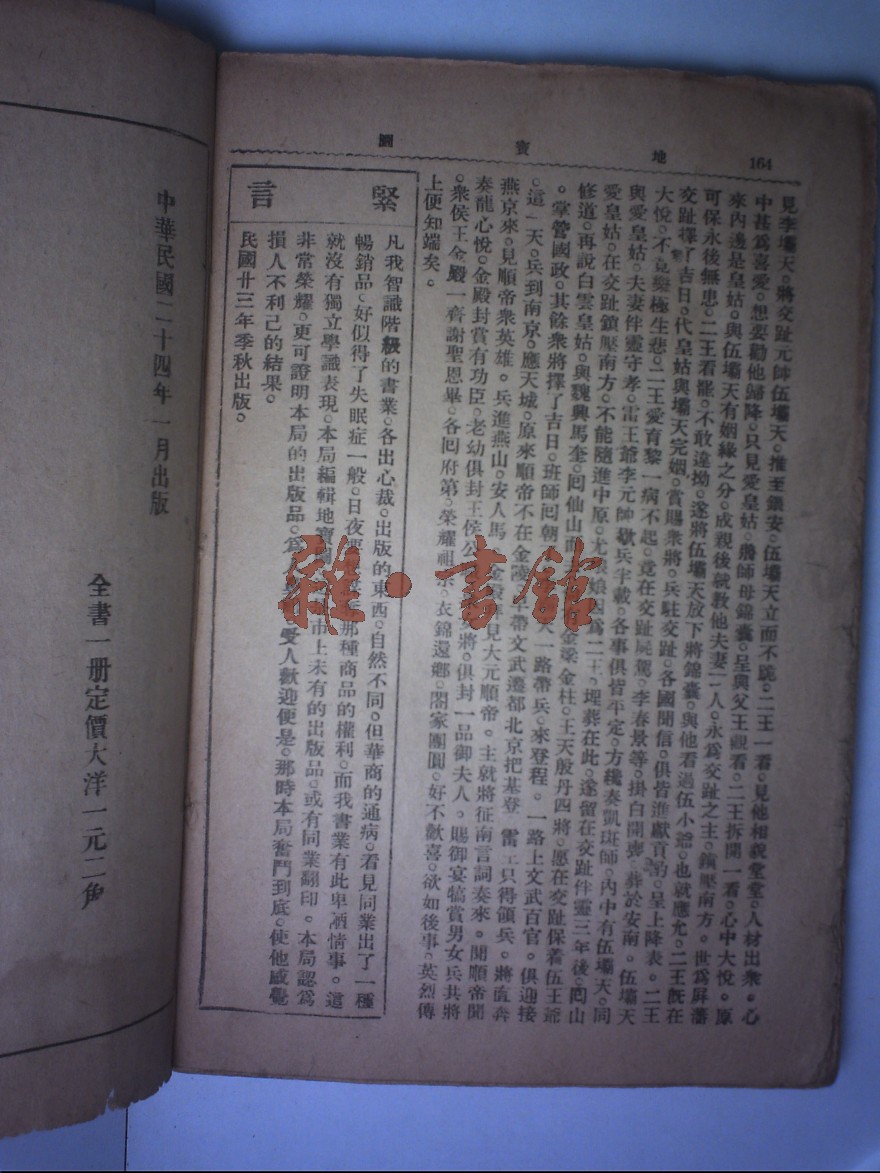 164
地寶圖
見李壩天。將交趾元帥伍壩天。推至鎮安。伍壩天立而不跪。二王一看。見他相貌堂堂。人材出衆。心
中甚爲喜愛。想要勸他歸降。只見愛皇姑。將師母錦囊。呈與父王觀看。二王拆開一看。心中大悅。原
來內邊是皇姑。與伍壩天有姻緣之分。成親後就教他夫妻二人。永爲交趾之主。鎮壓南方。世爲屏藩
可保永後無患。二王看罷。不敢違拗。遂將伍壩天放下將錦囊。與他看過伍小爺。也就應允。二王旣在
交趾擇了吉日。代皇姑與壩天完姻。賞賜衆將。兵駐交趾。各國聞信。俱皆進獻貢物。呈上降表。二王
大悅。不覺樂極生悲。二王愛育黎一病不起。竟在交趾屍駕。李春景等。掛白開喪。葬於安南。伍壩天
與愛皇姑。夫妻伴靈守孝。雷王爺李元帥歇兵半載。各事俱皆平定。方纔奏凱班師。內中有伍壩天。同
愛皇姑。在交趾鎮壓南方。不能隨進中原。尤娘娘因爲二王。埋葬在此。遂留在交趾伴靈三年後。囘山
修道。再說白雲皇姑。與魏興馬奎。囘仙山而 金梁金柱。王天殷丹四將。愿在交趾保着伍王爺
。掌管國政。其餘衆將擇了吉日。班師囘朝 大一路帶兵。來登程。一路上文武百官。俱迎接
。這一天。兵到南京。應天城。原來順帝不在金陵 早帶文武遷都北京把基登。雷王只得領兵。將直奔
燕京來。見順帝衆英雄。兵進燕山。安人馬。金殿 見大元順帝。主就將征南言詞奏來。聞順帝聞
奏龍心悅。金殿封賞有功臣。老幼俱封王侯公 將。俱封一品御夫人。賜御宴犒賞男女兵共將
。衆侯王金殿一齊謝聖恩畢。各囘府第。榮耀祖 衣錦還鄉。閤家團圓。好不歡喜。欲如後事。英烈傳
上便知端矣。
緊言
凡我智識階級的書業。各出心裁。出版的東西。自然不同。但華商的通病。看見同業出了一種
暢銷品。好似得了失眠症一般。日夜要 那種商品的權利。而我書業有此卑洒情事。這
就沒有獨立學識表現。本局編輯地寶圖 市上未有的出版品。或有同業翻印。本局認爲
非常榮耀。更可證明本局的出版品。爲人 受人歡迎便是。那時本局奮鬥到底。使他感覺
損人不利己的結果。
民國廿三年季秋出版。
中華民國二十四年一月出版
全書一册定價大洋一元二角
雜·書館